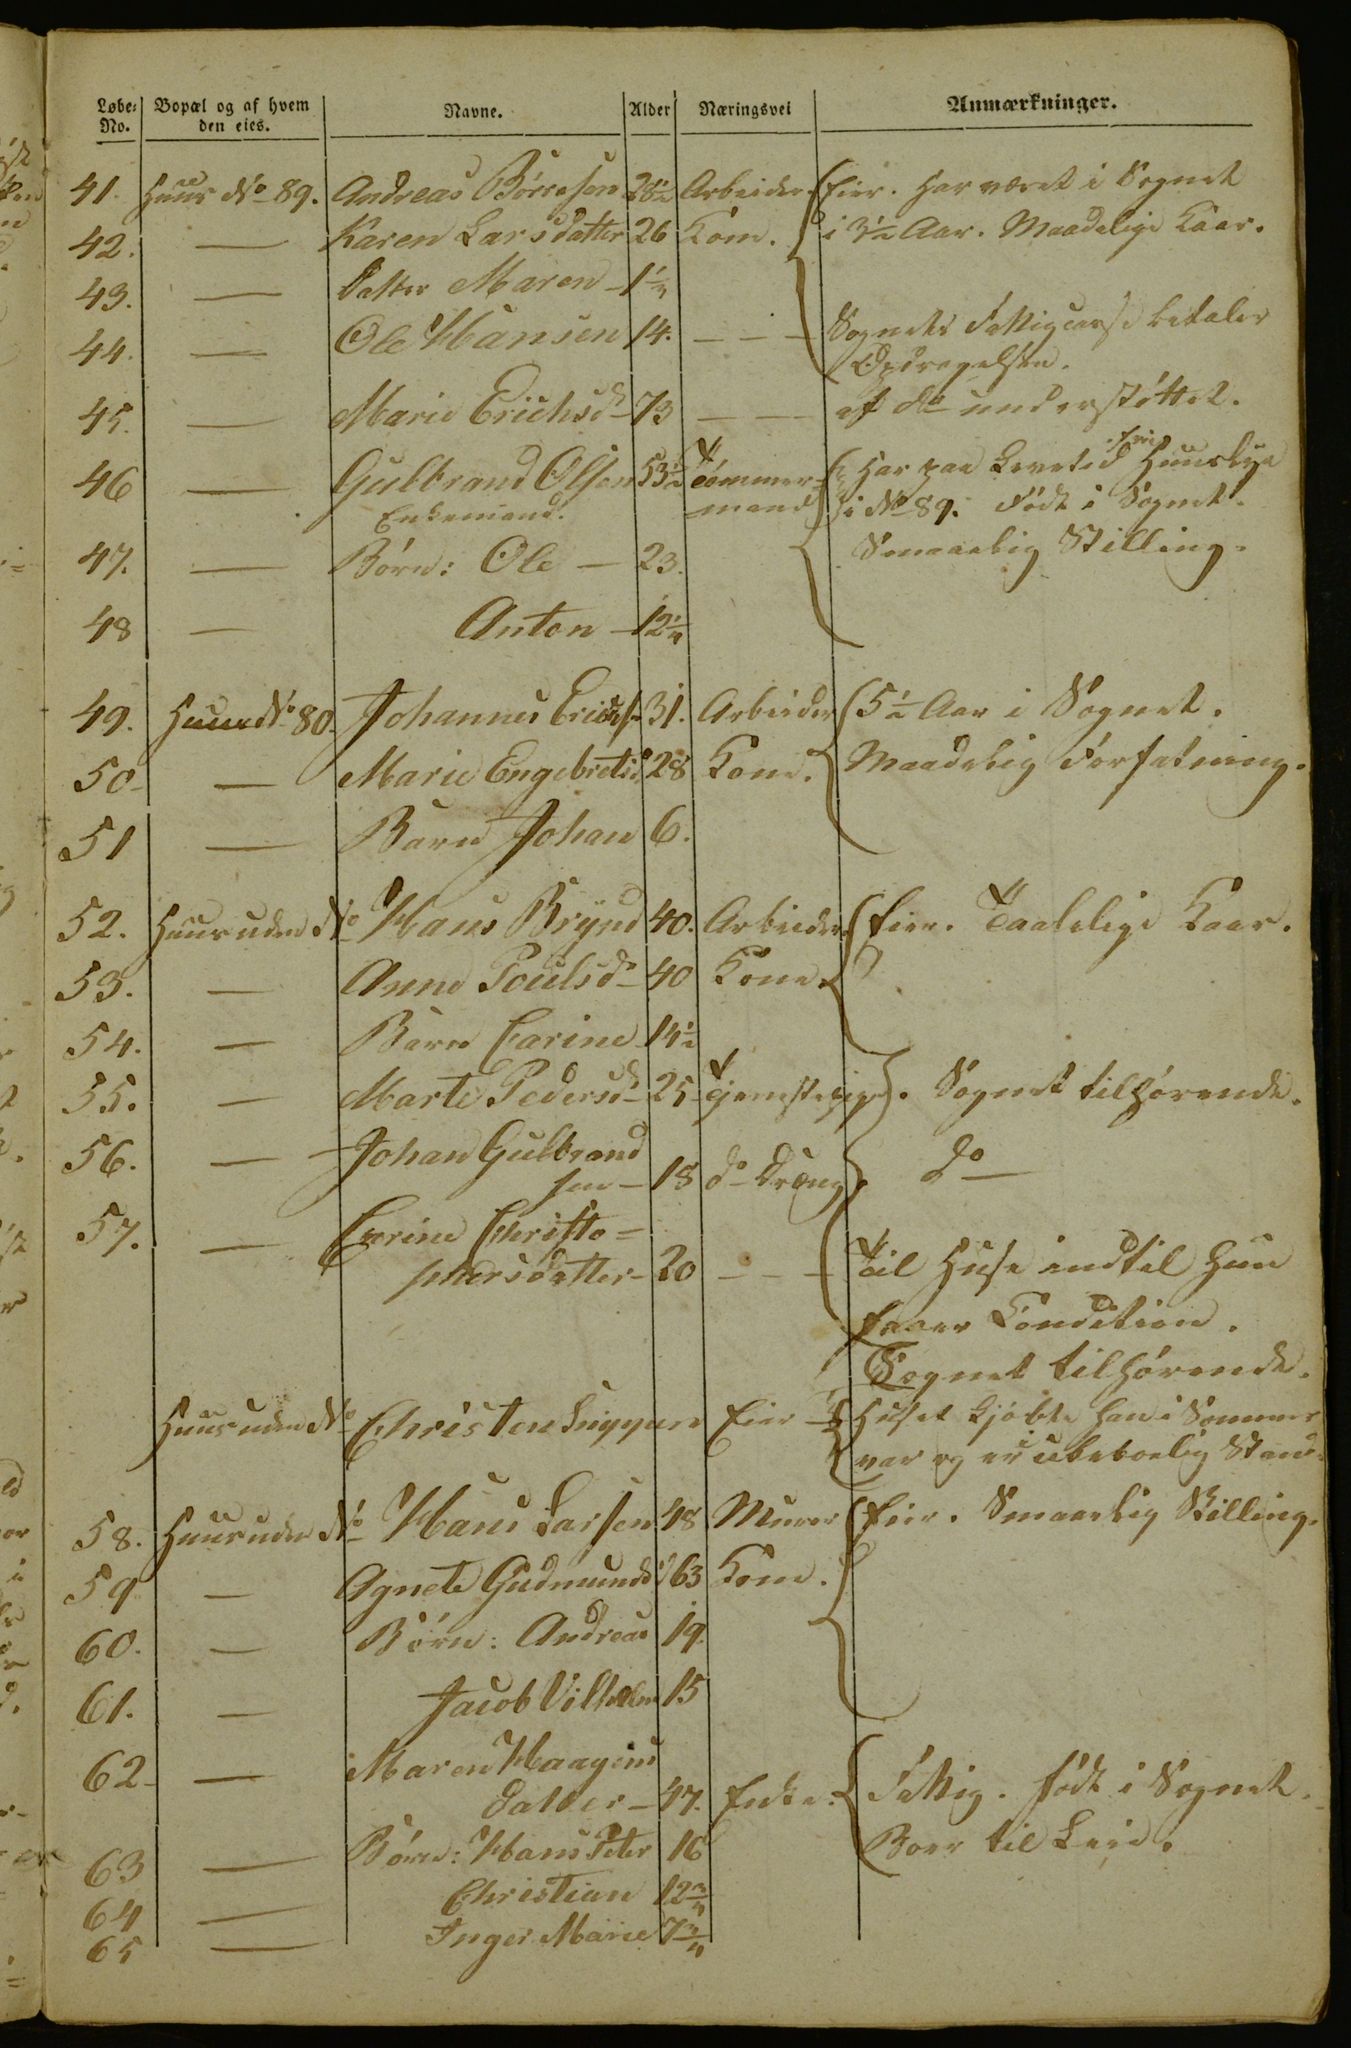 Løbe-No. Bopæl og af hvem den eies. Navne. Alder Næringsvei Anmærkninger.
41. Huus No 89. Andreas Børresen 28½ Arbeider Eier. Har været i Sognet
42. — Karen Larsdatter 26 Kone. i 3½ Aar. Maadelige Kaar.
43. — Datter Maren - 1¼
44. — Ole Hansen 14. - - - Sognets Fattigcasse betaler
Opdragelsen.
45. — Marie Erichsd 73 — af do understøttet.
46 — Gulbrand Olsen 53½ Tømmer- Har paa Levetid frie Huuslye
Enkemand. mand i No 89. Født i Sognet.
47. — Børn: Ole — 23. Smaaelig Stilling.
48 — Anton - 12¼
49. Huus No 80. Johannes Erichs. 31. Arbeider 5½ Aar i Sognet.
50 - — Marie Engebretsd 28 Kone. Maadelig Forfatning.
51 — Barn Johan 6.
52. Huus uden No Hans Brynd 40. Arbeider Eier. Taalelige Kaar.
53. — Anne Poulsd - 40 Kone
54. — Barn Carine 14½
55. — Marte Pedersd - 25 Tjenestepige. Sognet tilhørende.
56. — Johan Gulbrand
sen - 18 do Dreng. do —
57. — Christo=
phersdatter - 20 - - - Til Huse indtil hun
faaer Condition.
Sognet tilhørende.
Huus uden No Christen Eier - Huset kjøbte han i Sommer
var og er i ubeboelig Stand.
58. Huus uden No Hans Larsen 48 Murer Eier. Smaaelig Stilling.
59 — Agnete Gudmundsd 63 Kone.
60. — Børn: Andreas 19.
61. — Jacob Vilhelm 15
62 - — Maren Haagens
datter - 47. Enke. Fattig. født i Sognet.
63 — Børn: Hans Peter 16 Boer til Leie.
64 — Christian 12¾
65 — Inger Marie 7¾